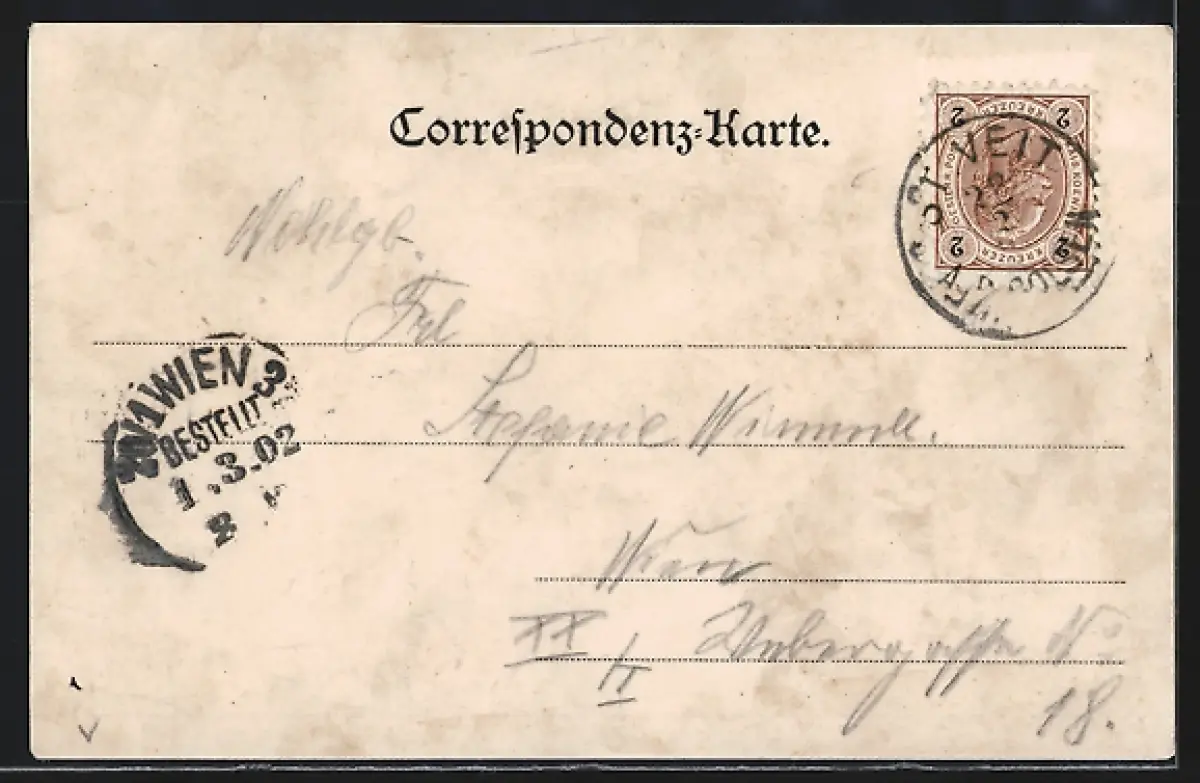 Correspondenz-Karte.
2 KREUZER 2
2 KREUZER 2
ST. VEIT
Wohlgb.
Frl
Stefanie
WIEN
BESTELLT
1.3.02
Wien
XX
II
Webergasse No
18.